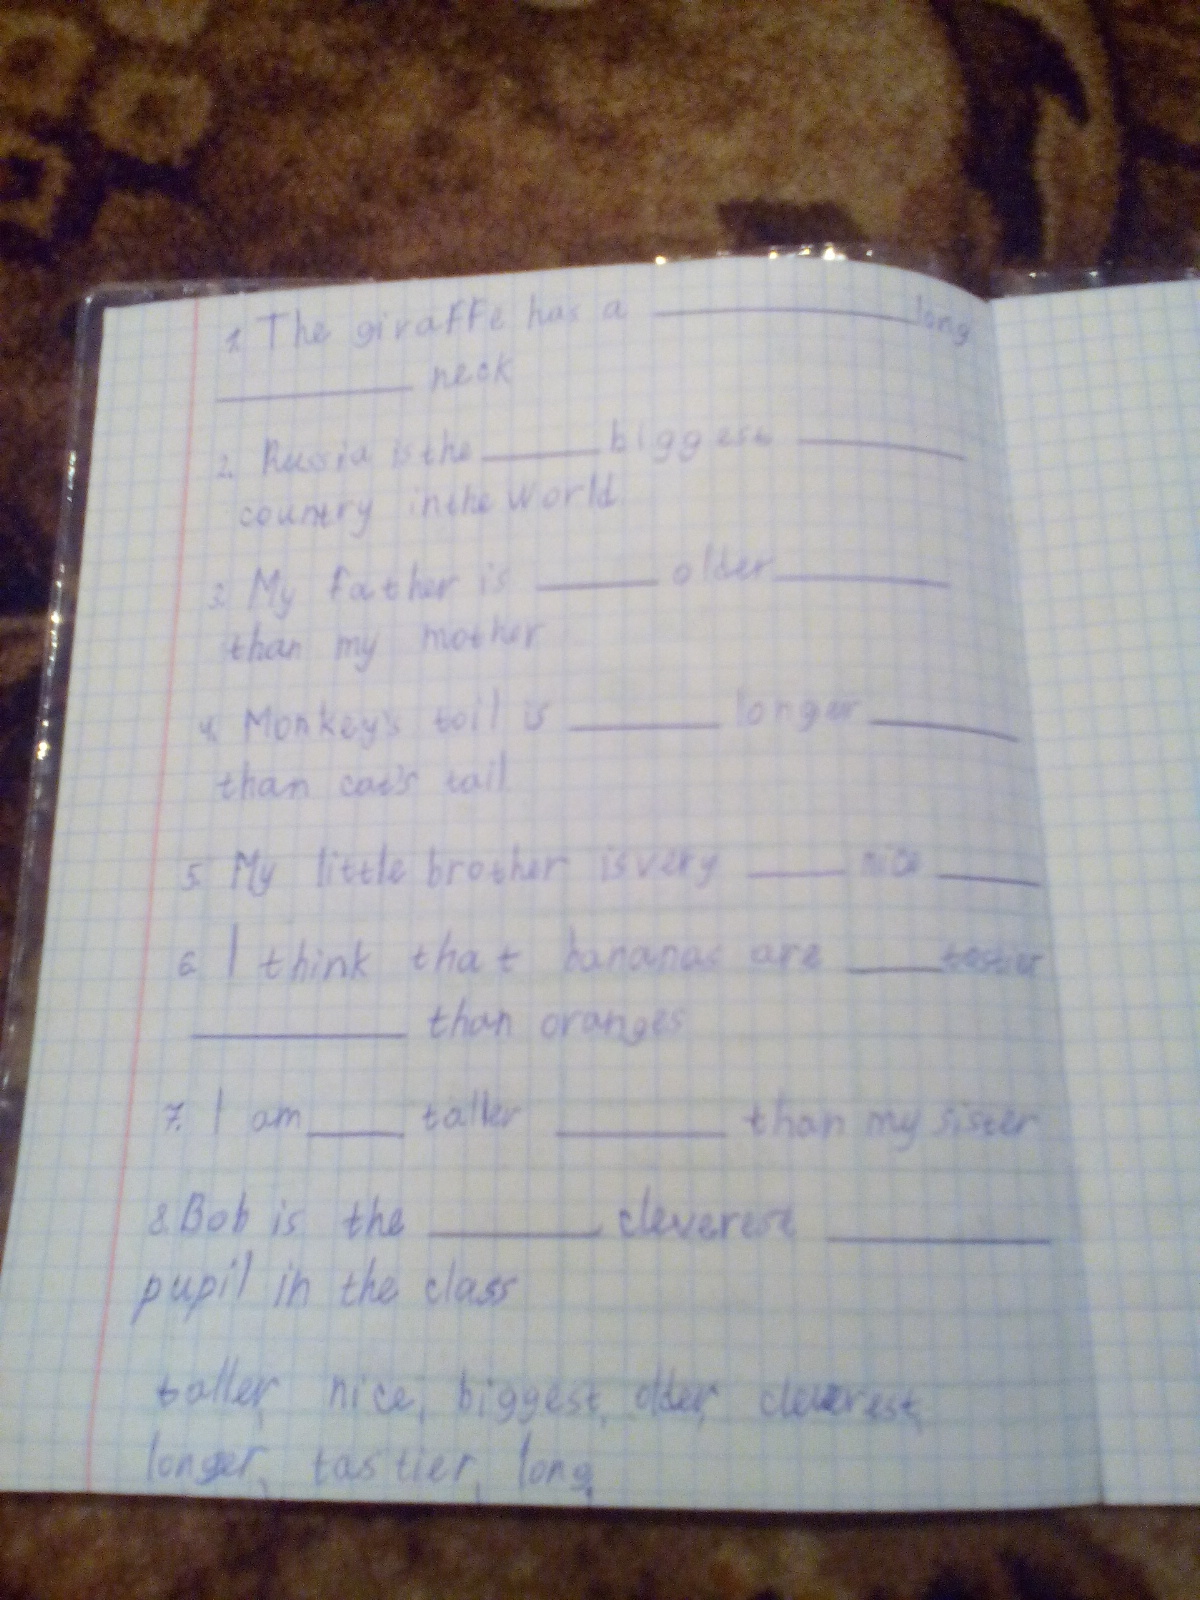 1. The giraffe has a ____ long
____ neck
2. Russia is the ____ biggest ____
country in the world
3. My Father is ____ older ____
than my mother
4. Monkey's tail is ____ longer ____
than cat's tail
5. My little brother is very ____ nice ____
6. I think that bananas are ____ tastier
____ than oranges
7. I am ____ taller ____ than my sister
8. Bob is the ____ cleverest ____
pupil in the class
taller, nice, biggest, older, cleverest,
longer, tastier, long.